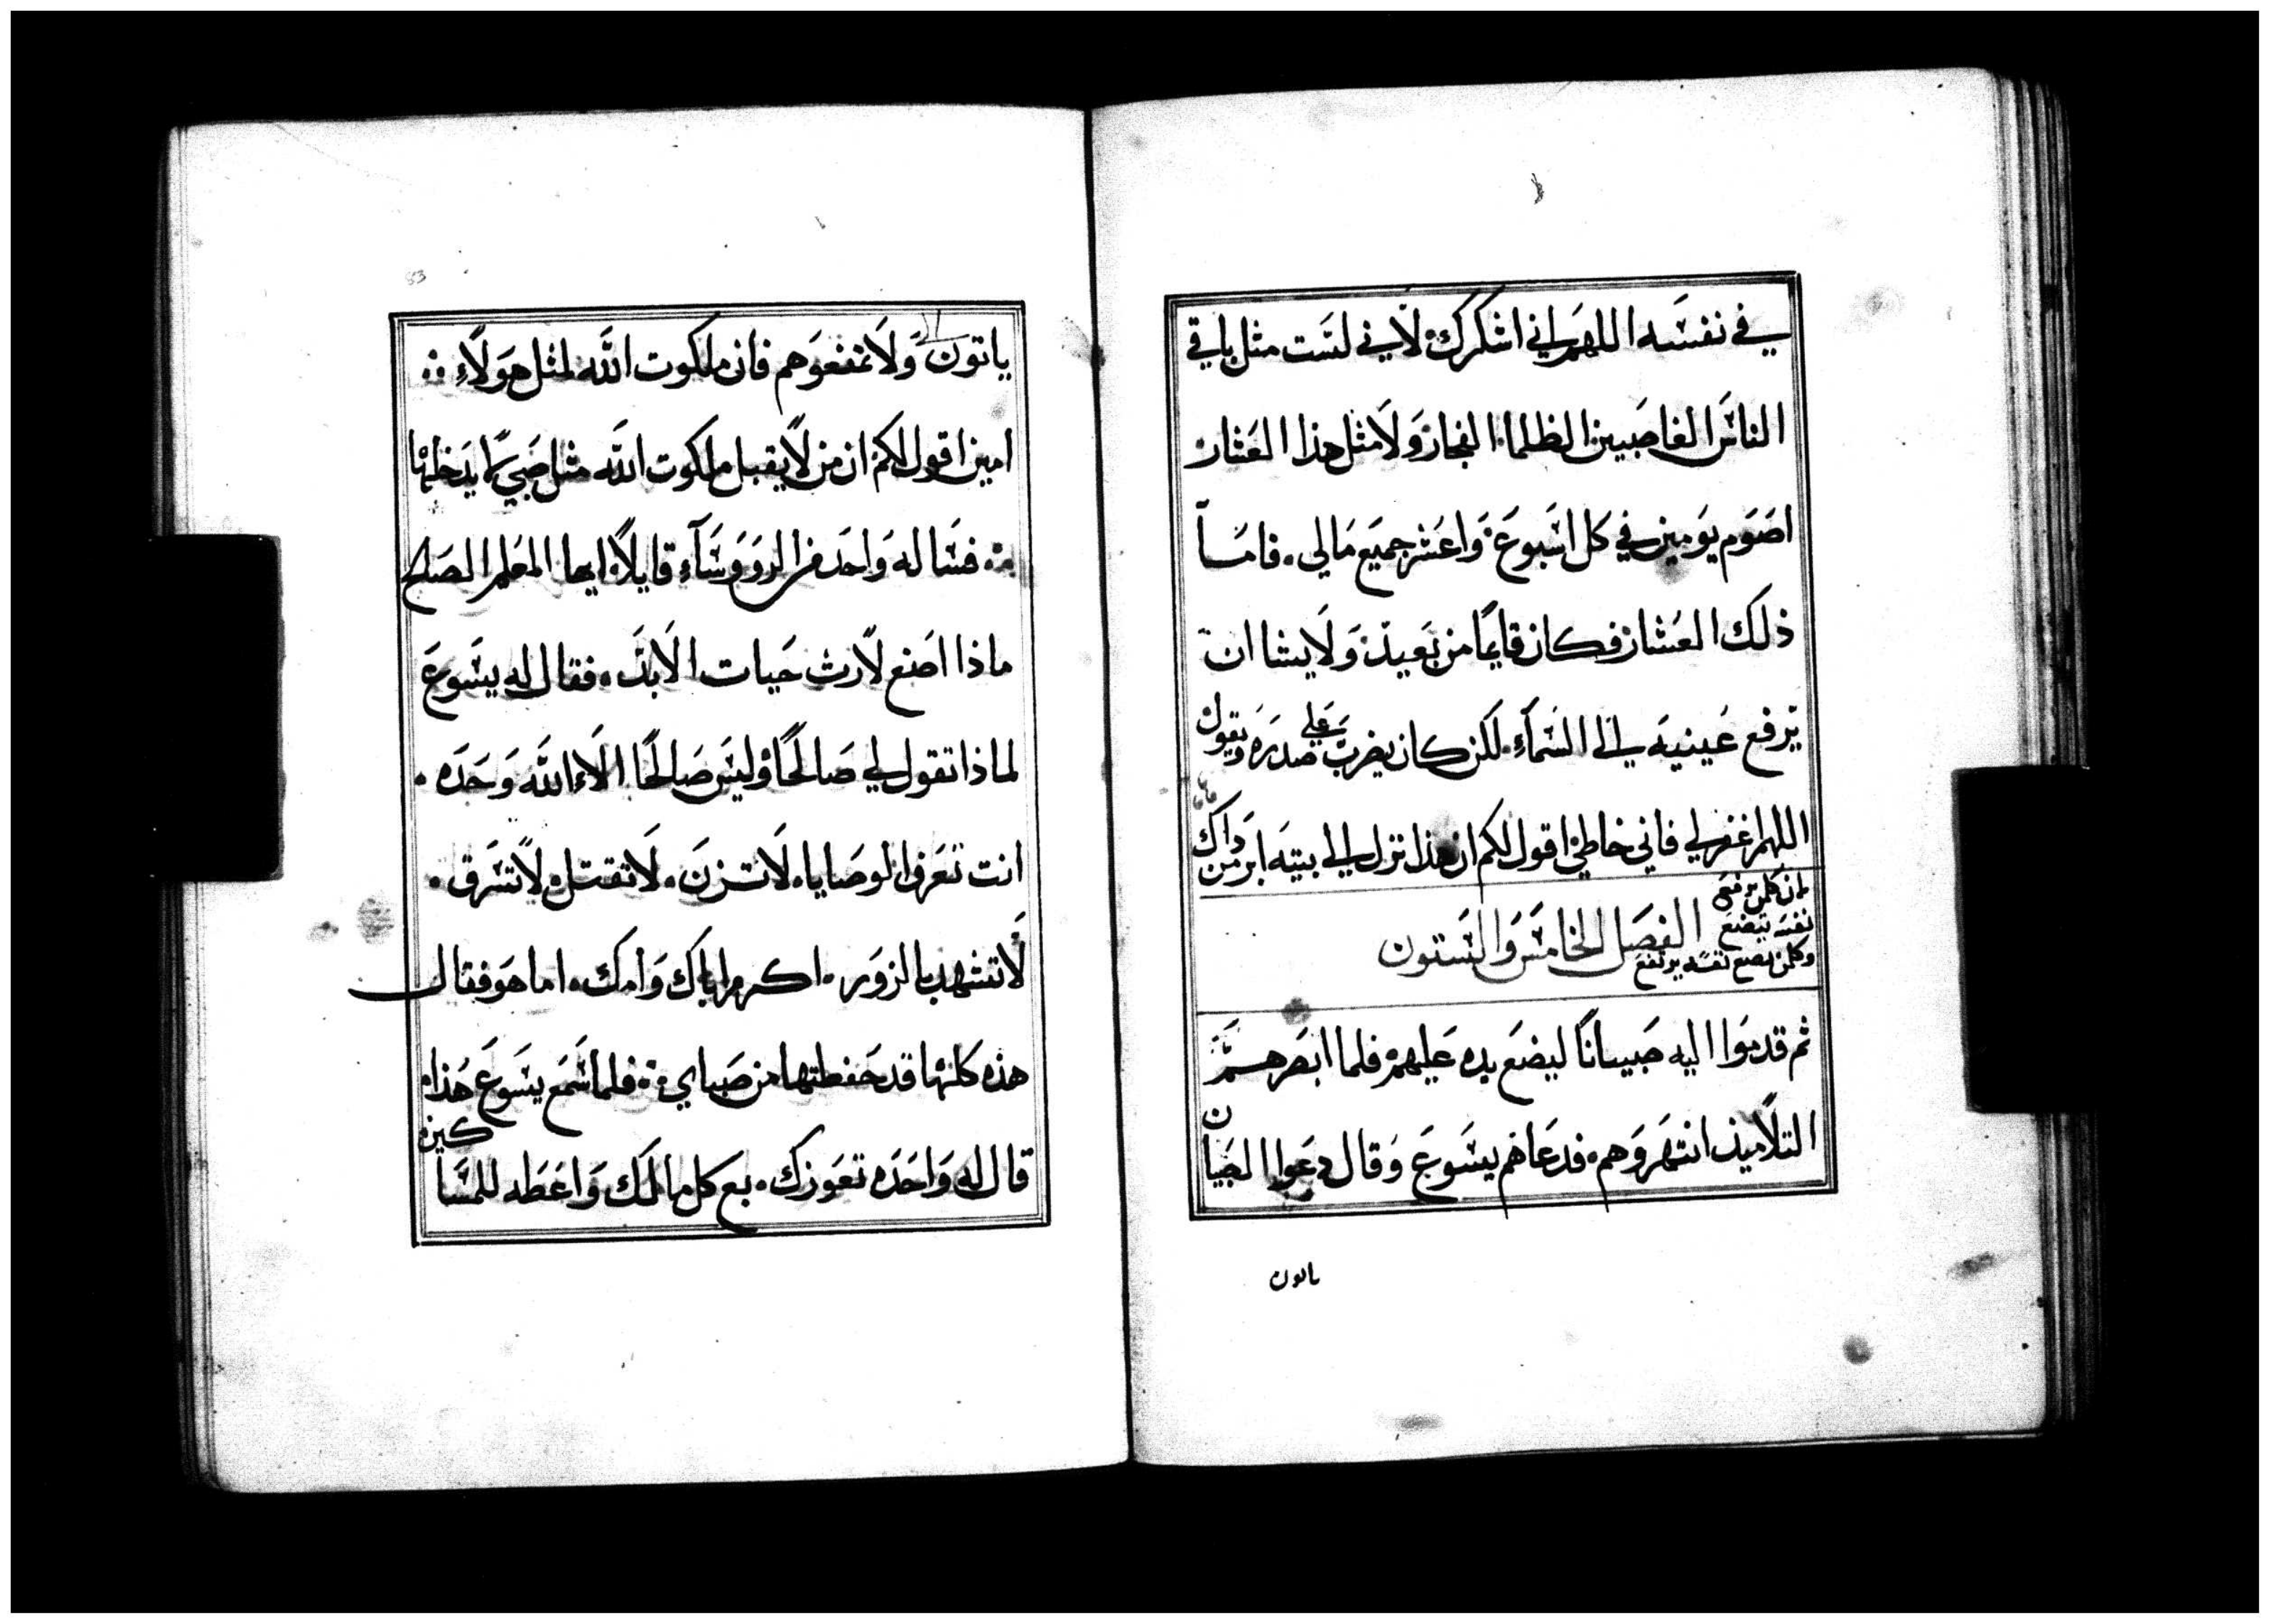 في نفسه اللهم اني اشكرك لاني لست مثل باقي
الناس الغاصبين الظلما الفجار ولا مثل هذا العشار
اصوم يومين في كل اسبوع واعشر جميع مالي. فاما
ذلك العشار فكان قايمًا من بعيد ولا يشا ان
يرفع عينيه الى السماء. لكن كان يضرب على صدره ويقول
اللهم اغفر لي فاني خاطئ اقول لكم ان هذا نزل الى بيته ابر من ذاك
لان كلمن يرفع
نفسه يتضع
وكلمن يضع نفسه يرتفع
الفصل الخامس والستون
ثم قدموا اليه صبيانًا ليضع يده عليهم فلما ابصرهم
التلاميذ انتهروهم. فدعاهم يسوع وقال دعوا الصبيان
ياتون
53
ياتون ولا تمنعوهم فان ملكوت الله لمثل هولاء
امين اقول لكم ان من لا يقبل ملكوت الله مثل صبي ما يدخلها
فساله واحد من الرووساء قايلًا ايها المعلم الصالح
ماذا اصنع لارث حيات الابد. فقال له يسوع
لماذا تقول لي صالحًا وليس صالحًا الا الله وحده.
انت تعرف الوصايا. لا تزن. لا تقتل. لا تسرق.
لا تشهد بالزور. اكرم اباك وامك. اما هو فقال
هذه كلها قد حفظتها من صباي فلما سمع يسوع هذا
قال له واحده تعوزك. بع كل ما لك واعطه للمساكين